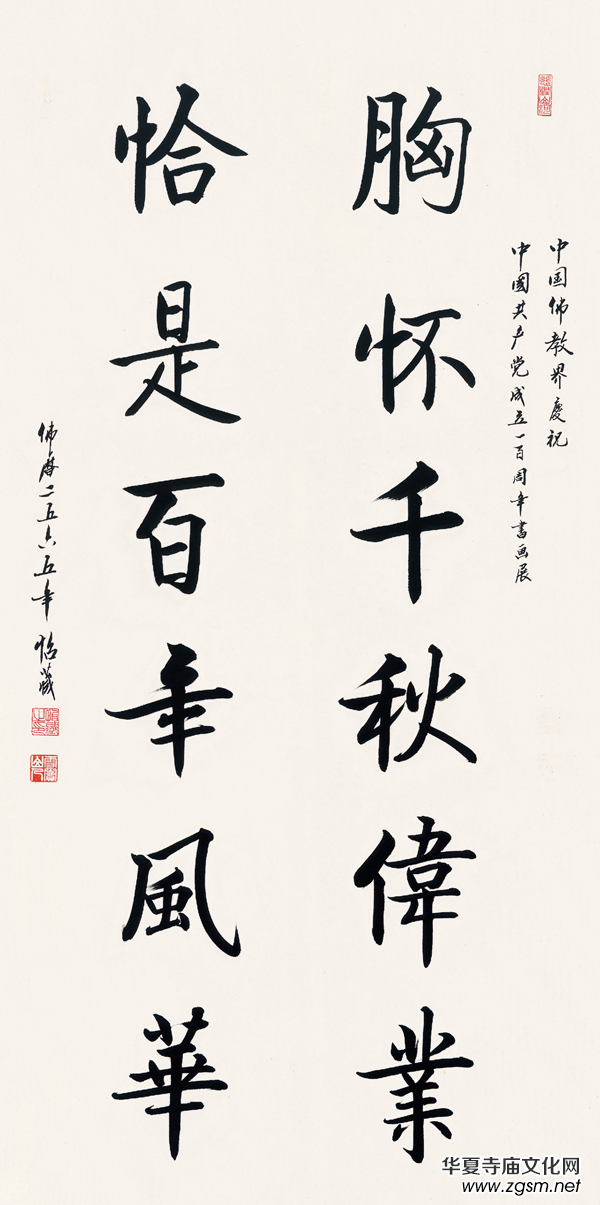 中国佛教界慶祝
中國共产党成立一百周年書画展
胸怀千秋偉業
恰是百年風華
佛曆二五六五年 怡藏
华夏寺庙文化网
www.zgsm.net